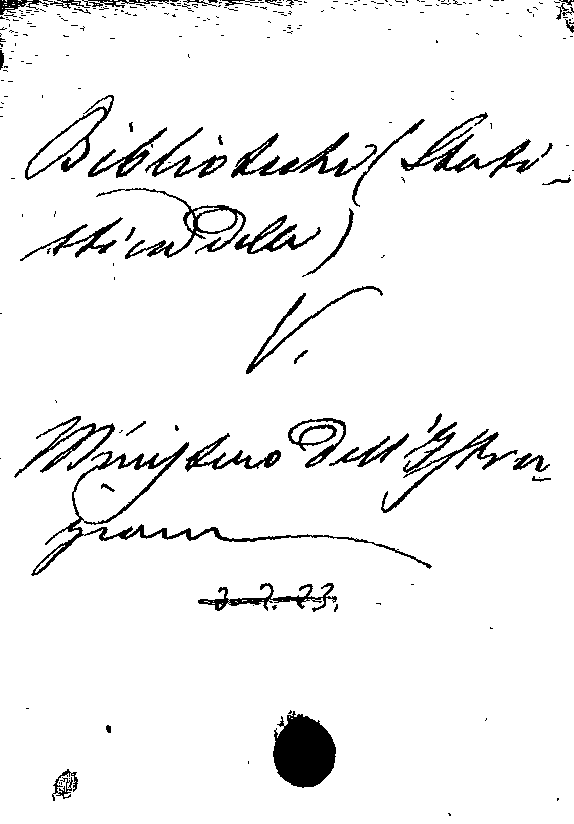 Biblioteche (Stati-
stica delle)
V.
Ministero dell'Istru-
zione